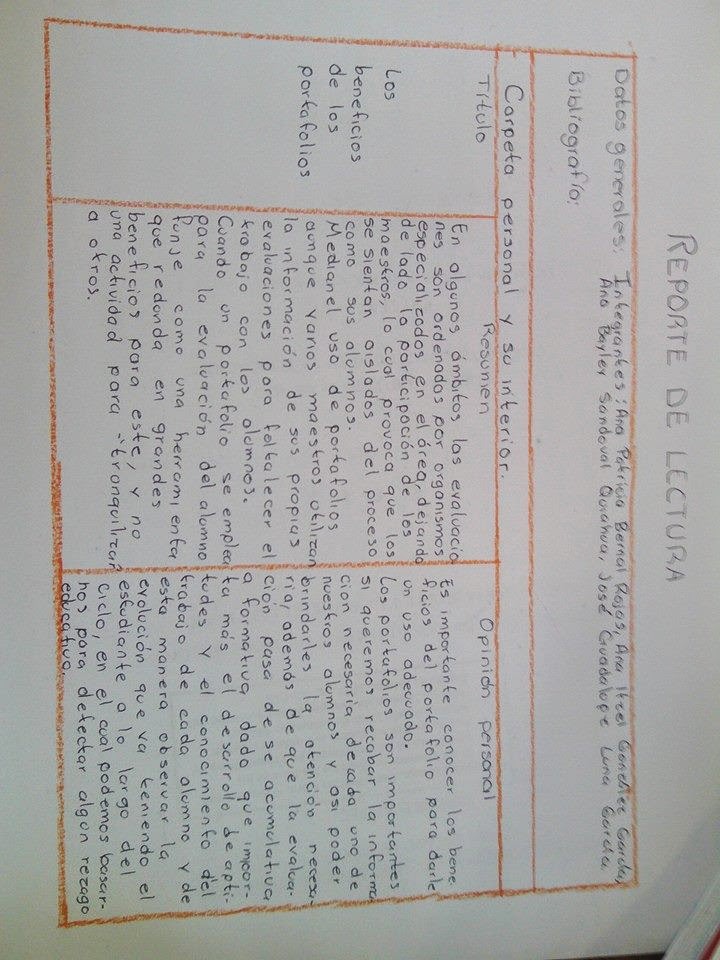 REPORTE DE LECTURA
Datos generales: Integrantes: Ana Patricia Bernal Rojas, Ana Itzel González García,
Ana Bayley Sandoval Quiahua, José Guadalupe Luna García.
Bibliografía:
Carpeta personal y su interior.
Título
Los
beneficios
de los
portafolios
Resumen
En algunos ámbitos las evaluacio
nes son ordenadas por organismos
especializados en el área, dejando
de lado la participación de los
maestros, lo cual provoca que los
se sientan aislados del proceso
como sus alumnos.
Medianel uso de portafolios
aunque varios maestros utilizan
la información de sus propias
evaluaciones para foltalecer el
trabajo con los alumnos.
Cuando un portafolio se emplea
para la evaluación del alumno
funje como una herramienta
que redonda en grandes
beneficios para este, y no
una actividad para "tranquilizar"
a otros.
Opinión personal
Es importante conocer los bene
ficios del portafolio para darle
un uso adecuado.
Los portafolios son importantes
si queremos recabar la informa
cion necesaria de cada uno de
nuestros alumnos y asi poder
brindarles la atención necesa-
ria, además de que la evalua-
ción pasa de se acumulativa
a formativa dado que impor-
ta más el desarrollo de apti-
tudes y el conocimiento del
trabajo de cada alumno y de
esta manera observar la
evolución que va teniendo el
estudiante a lo largo del
ciclo, en el cual podemos basar-
nos para detectar algún rezago
educativo.